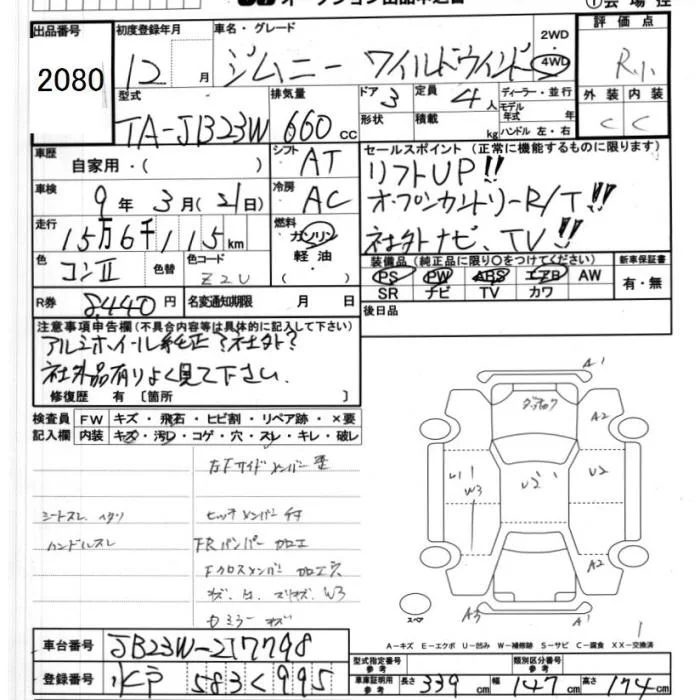 出品番号 初度登録年月 車名・グレード 2WD 評価点
2080 12 月 ジムニー ワイルドウインド 4WD R.1.
型式 排気量 ドア 3 定員 4人 ディーラー・並行 外装 内装
TA-JB23W 660 cc 形状 積載 kg モデル年式 年 ハンドル 左・右 C C
車歴 自家用・( ) シフト AT セールスポイント (正常に機能するものに限ります)
車検 9年 3月(21日) 冷房 AC リフトUP!!
オープンカントリーR/T!!
走行 15万6千115km 燃料 ガソリン 軽油・( ) 社外ナビ、TV!!
色 コンⅡ 色替 色コード Z2U 装備品 (純正品に限り○をつけてください) 新車保証書
PS PW ABS エアB AW 有・無
SR ナビ TV カワ
R券 8,440円 名変通知期限 月 日 後日品
注意事項申告欄(不具合内容等は具体的に記入して下さい)
アルミホイール純正?社外?
社外品有りよく見て下さい.
修復歴 有 〔箇所 〕
検査員 FW キズ・飛石・ヒビ割・リペア跡・×要
記入欄 内装 キズ・汚レ・コゲ・穴・スレ・キレ・破レ
左Fサイドメンバー
シートスレ ヘタリ ヒッチメンバー付
ハンドルスレ FRバンパー加工
Fクロスメンバー加工穴
W3
ミラーキズ
A1
A2
U1 W3 U2 U2
A2
A3 A1
スペア
A-キズ E-エクボ U-凹み W-補修跡 S-サビ C-腐食 XX-交換済
車台番号 JB23W-217798
登録番号 583 く 995
型式指定番号 参考 類別区分番号 参考
車庫証明用 参考 長さ 339cm 幅 147cm 高さ 174cm